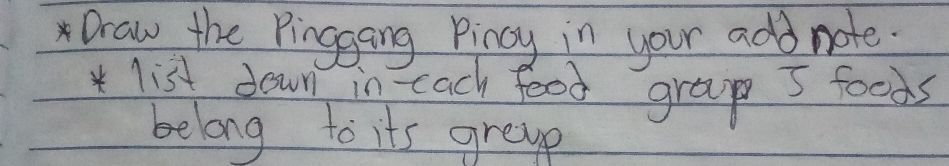 * Draw the Pinggang Pinoy in your add note.
* list down in each food group 5 foods
belong to its group